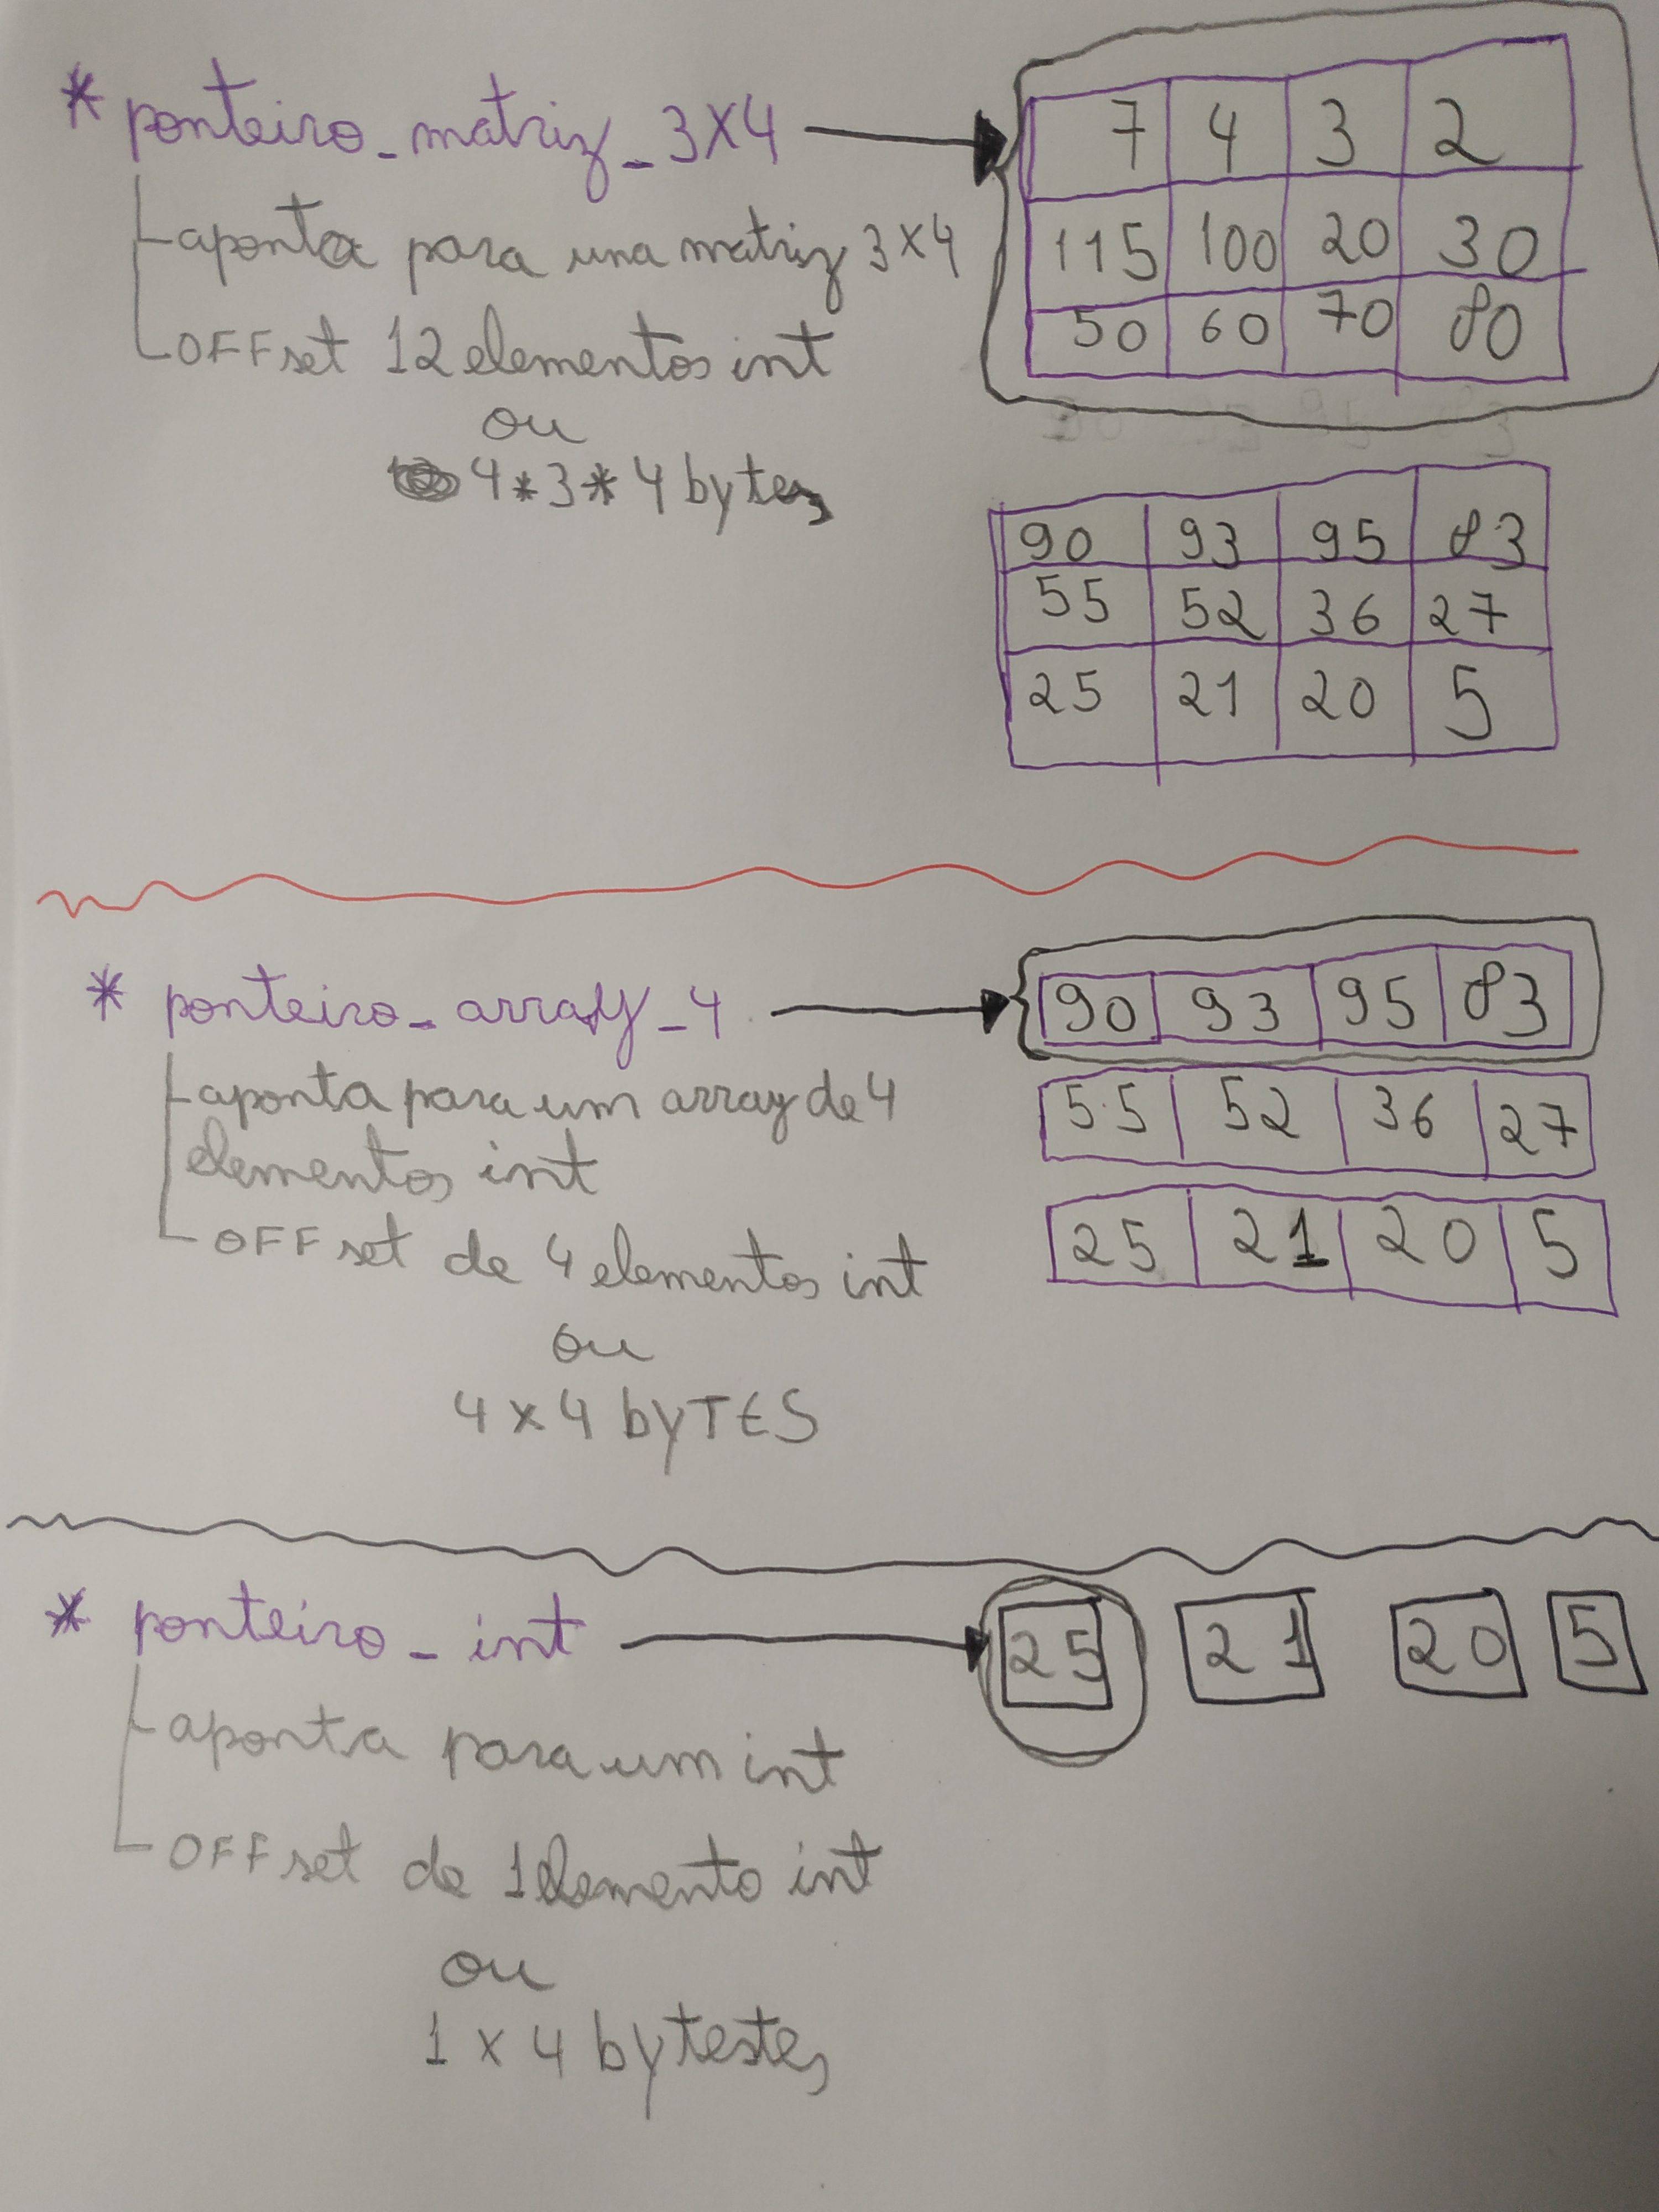 * ponteiro_matriz_3X4
7 4 3 2
aponta para una matriz 3X4
115 100 20 30
OFFset 12 elementos int
50 60 70 80
ou
4*3*4 bytes
90 93 95 83
55 52 36 27
25 21 20 5
* ponteiro_array_4
90 93 95 83
aponta para um array de 4
55 52 36 27
elementos int
OFFset de 4 elementos int
25 21 20 5
ou
4 x 4 byTES
* ponteiro_int
25 21 20 5
aponta para um int
OFFset de 1 elemento int
ou
1 x 4 bytestes